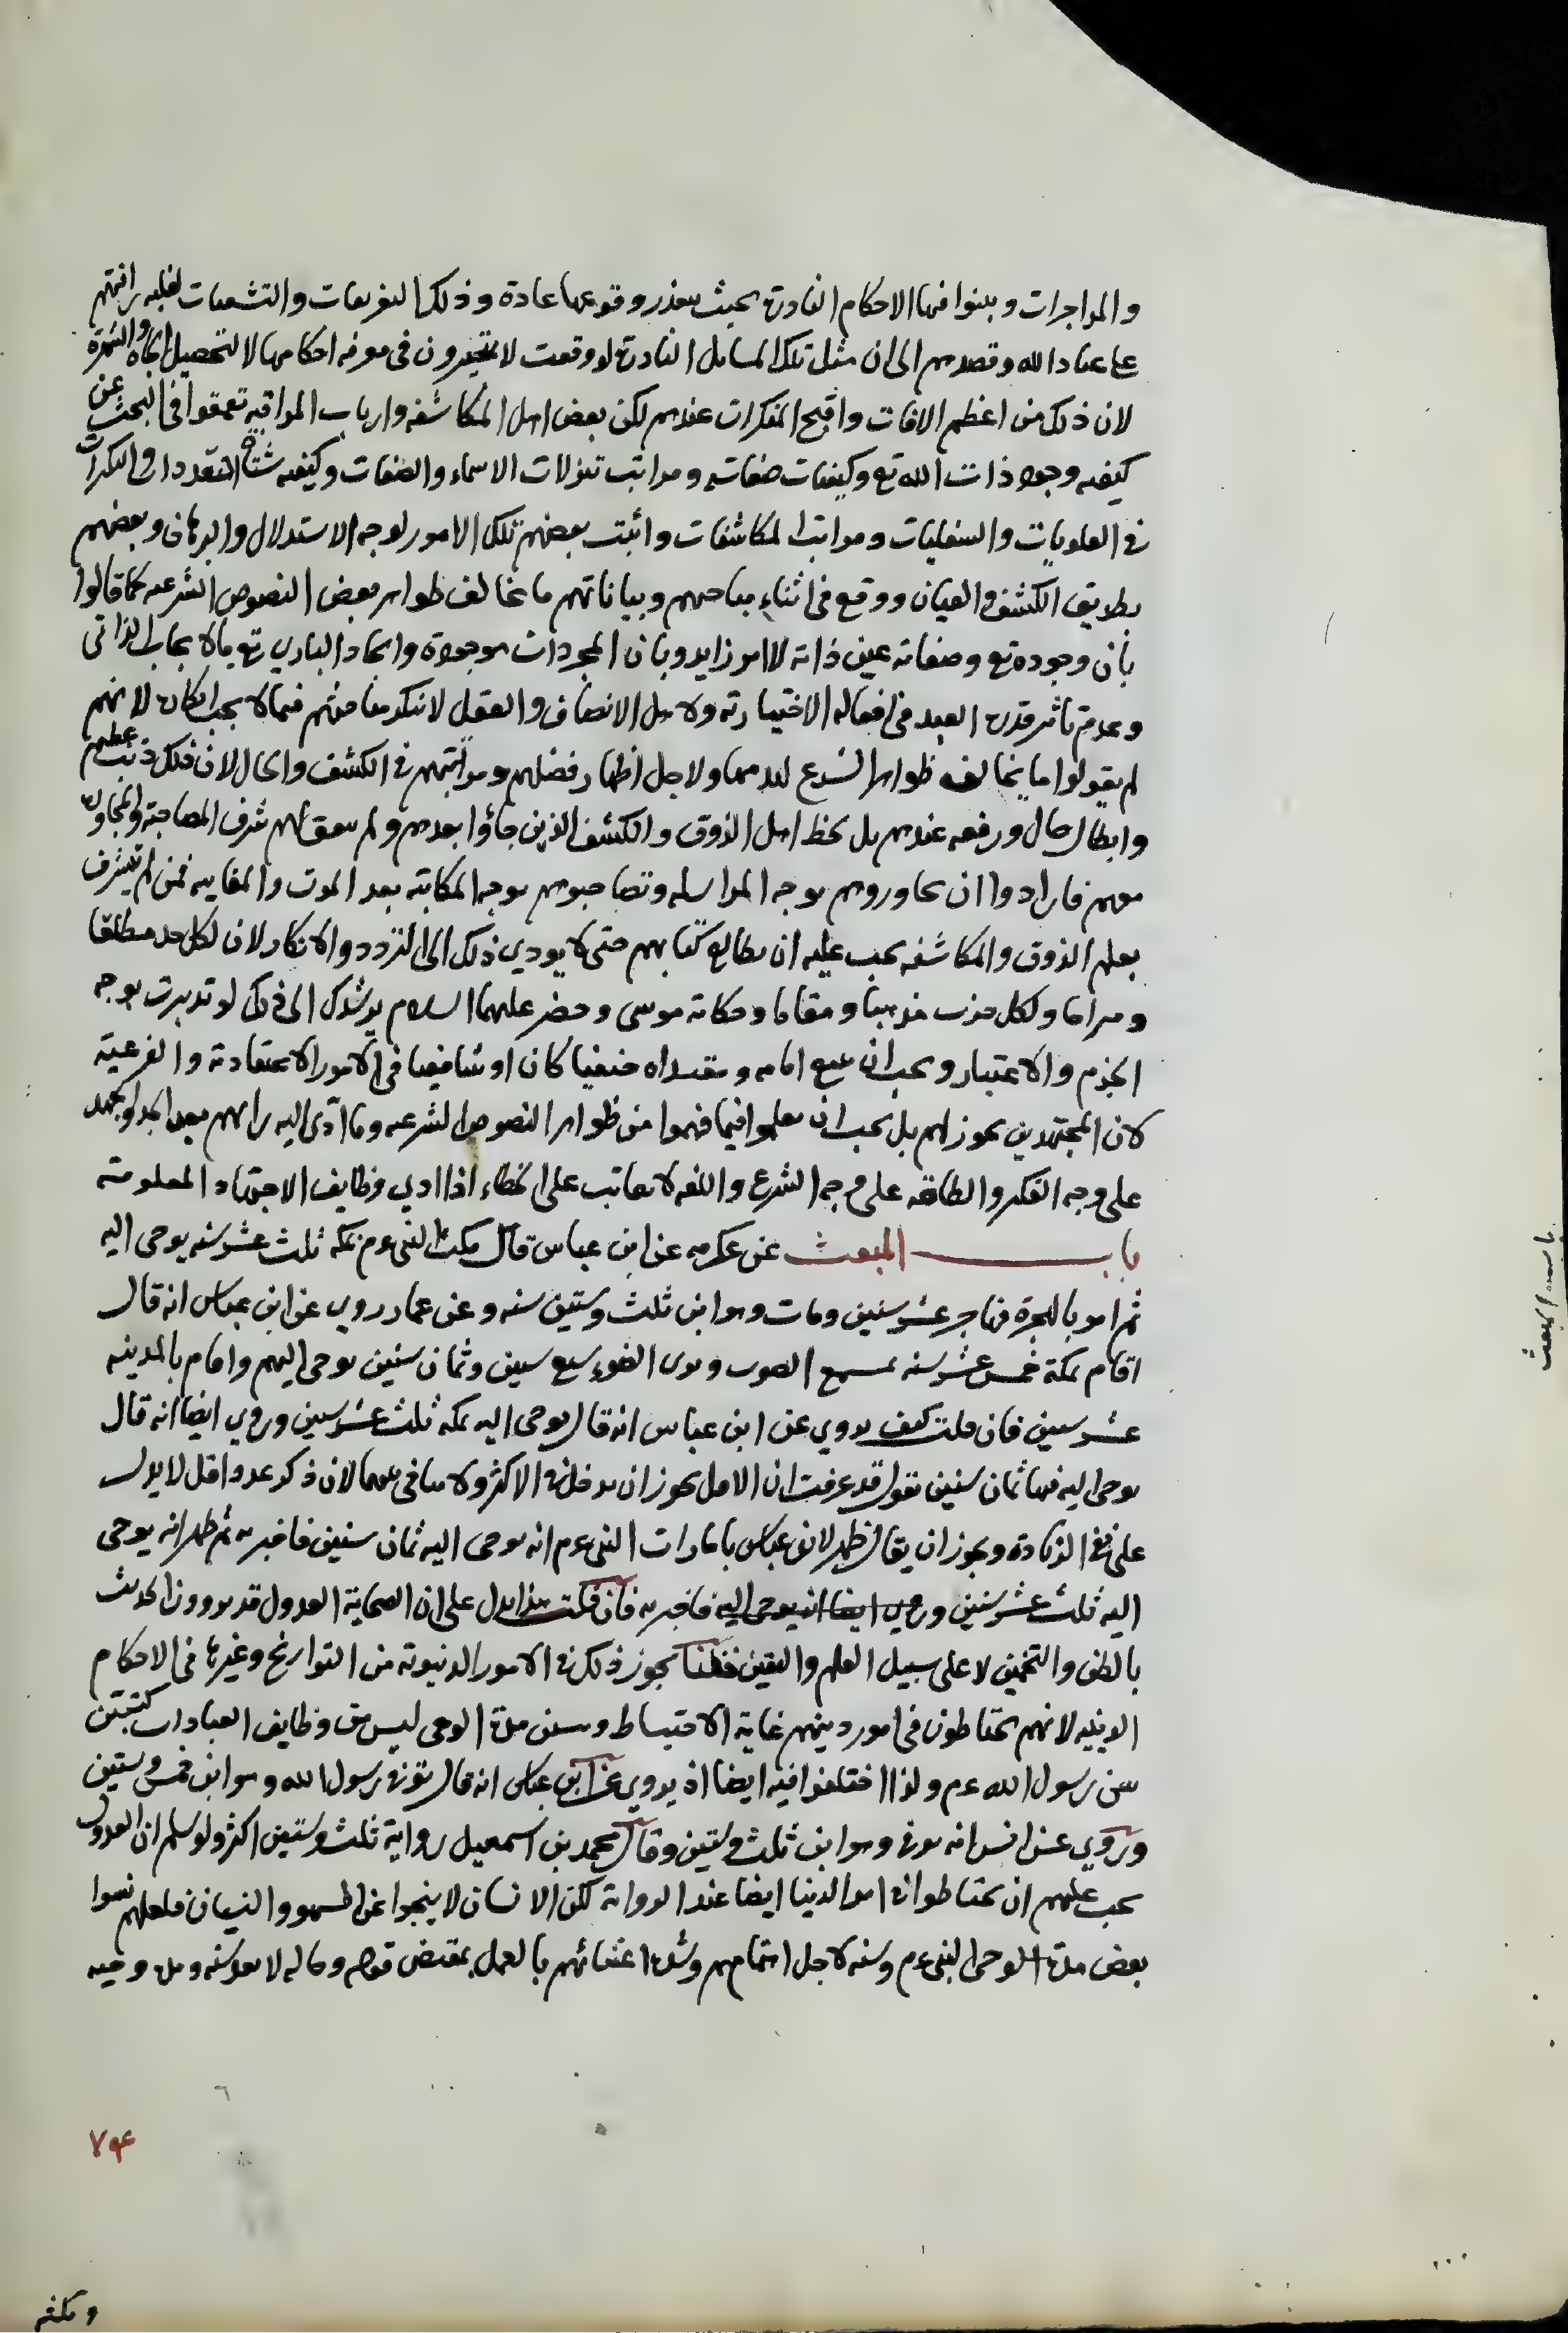 والمواجرات وبينوا فيها الاحكام النادرة بحيث يتعذر وقوعها عادة وذلك التفريعات والتشعبات لغلبة رافتهم
على عباد الله وقصدهم الى ان مثل تلك المسايل النادرة لو وقعت لا يتحيرون في معرفة احكامها لا لتحصيل الجاه والشهرة
لان ذلك من اعظم الافات واقبح المنكرات عندهم لكن بعض اهل المكاشفه وارباب المراقبه تعمقوا في البحث عن
كيفيه وجود ذات الله تع وكيفيات صفاته ومراتب تنزلات الاسماء والصفات وكيفيه التعددات والتكثرات
في العلويات والسفليات ومراتب المكاشفات واثبت بعضهم تلك الامور لوجه الاستدلال والبرهان وبعضهم
بطريق الكشف والعيان ووقع في اثناء مباحثهم وبياناتهم ما يخالف ظواهر بعض النصوص الشرعيه كما قالوا
بان وجوده تع وصفاته عين ذاته لا امر زايد وبان المجردات موجودة وايجاد الباري تع بالايجاب الذاتي
وعدم تاثير قدرة العبد في افعاله الاختيارية ولاهل الانصاف والعقل لا ننكر معارضتهم فيما لا يجب انكاره لانهم
لم يقولوا ما يخالف ظواهر الشرع لهدمها ولاجل اظهار فضلهم ومراتبهم في الكشف والحال لان ذلك ذنب عظيم
وابطال حال ورفعه عندهم بل لحظ اهل الذوق والكشف الذين جاؤا بعدهم ولم يتفق لهم شرف المصاحبة والمجاورة
معهم فارادوا ان يحاوروهم بوجه المراسله وتصاحبوهم بوجه المكاتبة بعد الموت والمغايبه فمن لم يتشرف
بعلم الذوق والمكاشفه يجب عليه ان لا يطالع كتابهم حتى لا يودي ذلك الى التردد والانكار لان لكل حد مطلقا
ومراما ولكل حزب مذهبا ومقاما وحكاية موسى وخضر عليهما السلام يرشدك الى ذلك لو تدبرت بوجه
الجزم والاعتبار ويجب ان يتبع امامه ومقتداه حنفيا كان او شافعيا في الامور الاعتقادية والفرعية
لان المجتهدين يجوز لهم بل يجب ان يعلموا فيما فهموا من ظواهر النصوص الشرعيه وما ادى اليه رايهم بعد الجد والجهد
على وجه الفكر والطاقه على وجه الشرع واللغه لا يعاتب على الخطاء اذا ادي وظايف الاجتهاد المعلومة
باب المبعث عن عكرمه عن ابن عباس قال مكث النبي عم بمكه ثلث عشر سنه يوحى اليه
ثم امر بالهجرة فهاجر عشر سنين ومات وهو ابن ثلث وستين سنه وعن عمار روي عن ابن عباس انه قال
اقام بمكة خمس عشر سنه يسمع الصوت ويرى الضوء سبع سنين وثمان سنين يوحى اليهم واقام بالمدينه
عشر سنين فان قلت كيف يروي عن ابن عباس انه قال يوحى اليه بمكه ثلث عشر سنين وروي ايضا انه قال
يوحى اليه فيها ثمان سنين نقول قد عرفت ان الاقل يجوز ان يدخل في الاكثر ولا منافى بينهما لان ذكر عدد اقل لا يدل
على نفي الزيادة ويجوز ان يقال ظهر لابن عباس بامارات النبي عم انه يوحى اليه ثمان سنين فاخبر به ثم ظهر انه يوحى
اليه ثلث عشر سنين وروي ايضا انه يوحى اليه فاخبر به فان قلت هذا يدل على ان الصحابة العدول قد يروون الحديث
بالظن والتخمين لا على سبيل العلم واليقين قلنا يجوز ذلك في الامور الدنيوية من التواريخ وغيرها في الاحكام
الدينيه لانهم يحتاطون في امور دينهم غاية الاحتياط وسنن مدة الوحي ليس من وظايف العبادات كتبيين
سن رسول الله عم ولذا اختلفوا فيه ايضا اذ يروي عن ابن عباس انه قال توفى رسول الله وهو ابن خمس وستين
وروي عن انس انه توفى وهو ابن ثلث وستين وقال محمد بن اسمعيل رواية ثلث وستين اكثر ولو سلم ان العدول
يجب عليهم ان يحتاطوا في امر الدنيا ايضا عند الرواية لكن الانسان لا ينجوا عن السهو والنسيان فلعلهم نسوا
بعض مدة الوحي النبي عم وسنه لاجل اهتمامهم وشدة اعتنائهم بالعمل بمقتض قوله وحاله لا بعد سنه ومدة وحيه
باب المبعث
٧٤
ومكث